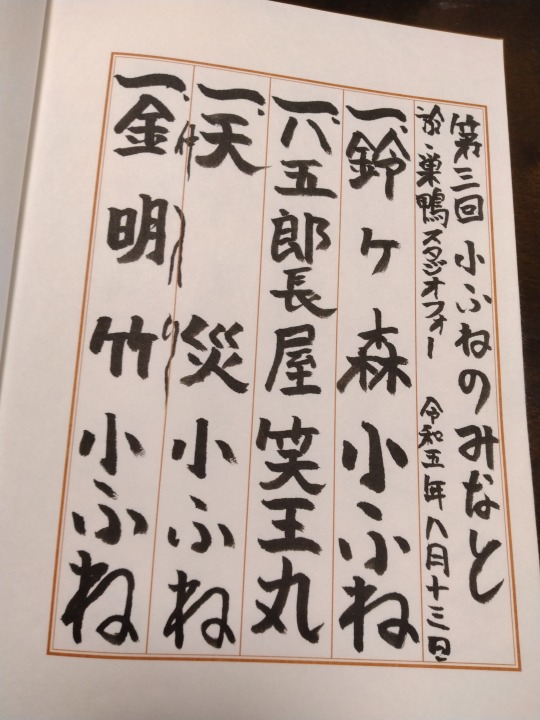 第三回 小ふねのみなと
於・巣鴨スタジオフォー 令和五年八月十三日
一、鈴ヶ森 小ふね
一、八五郎長屋 笑王丸
一、天災 小ふね
仲入り
一、金明竹 小ふね